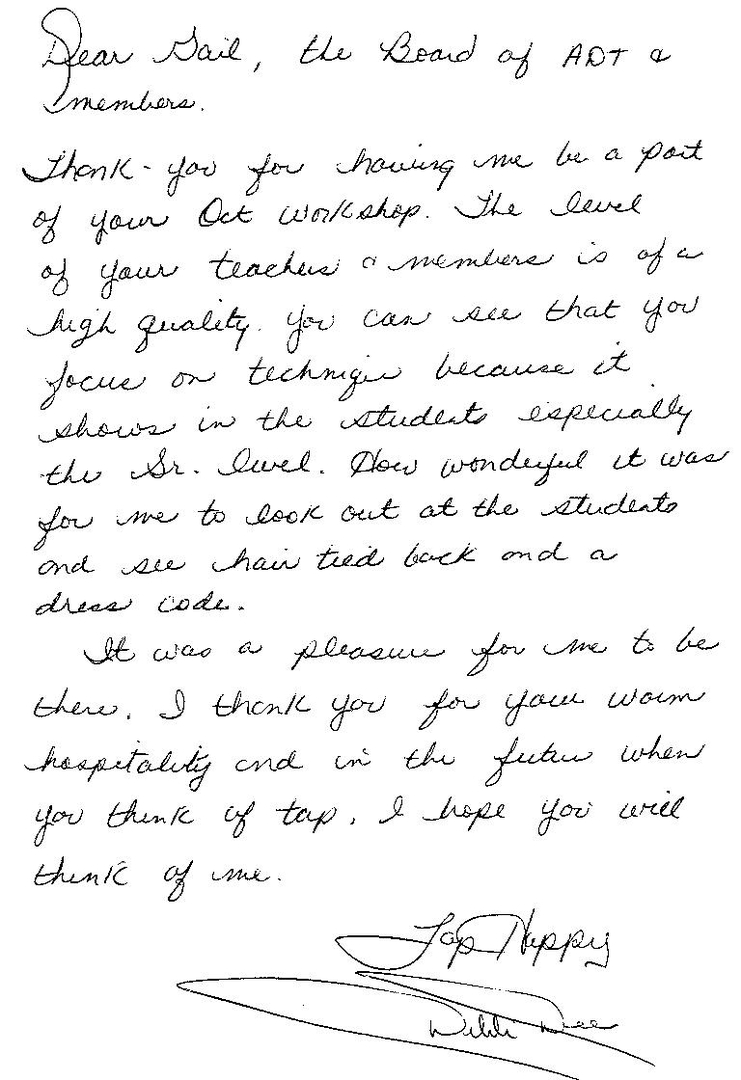 Dear Gail, the Board of ADT &
members.
Thank-you for having me be a part
of your Oct workshop. The level
of your teachers & members is of a
high quality. You can see that you
focus on technique because it
shows in the students especially
the Sr. level. How wonderful it was
for me to look out at the students
and see hair tied back and a
dress code.
It was a pleasure for me to be
there. I thank you for your warm
hospitality and in the future when
you think of tap, I hope you will
think of me.
Tap Happy
Debbi Dee